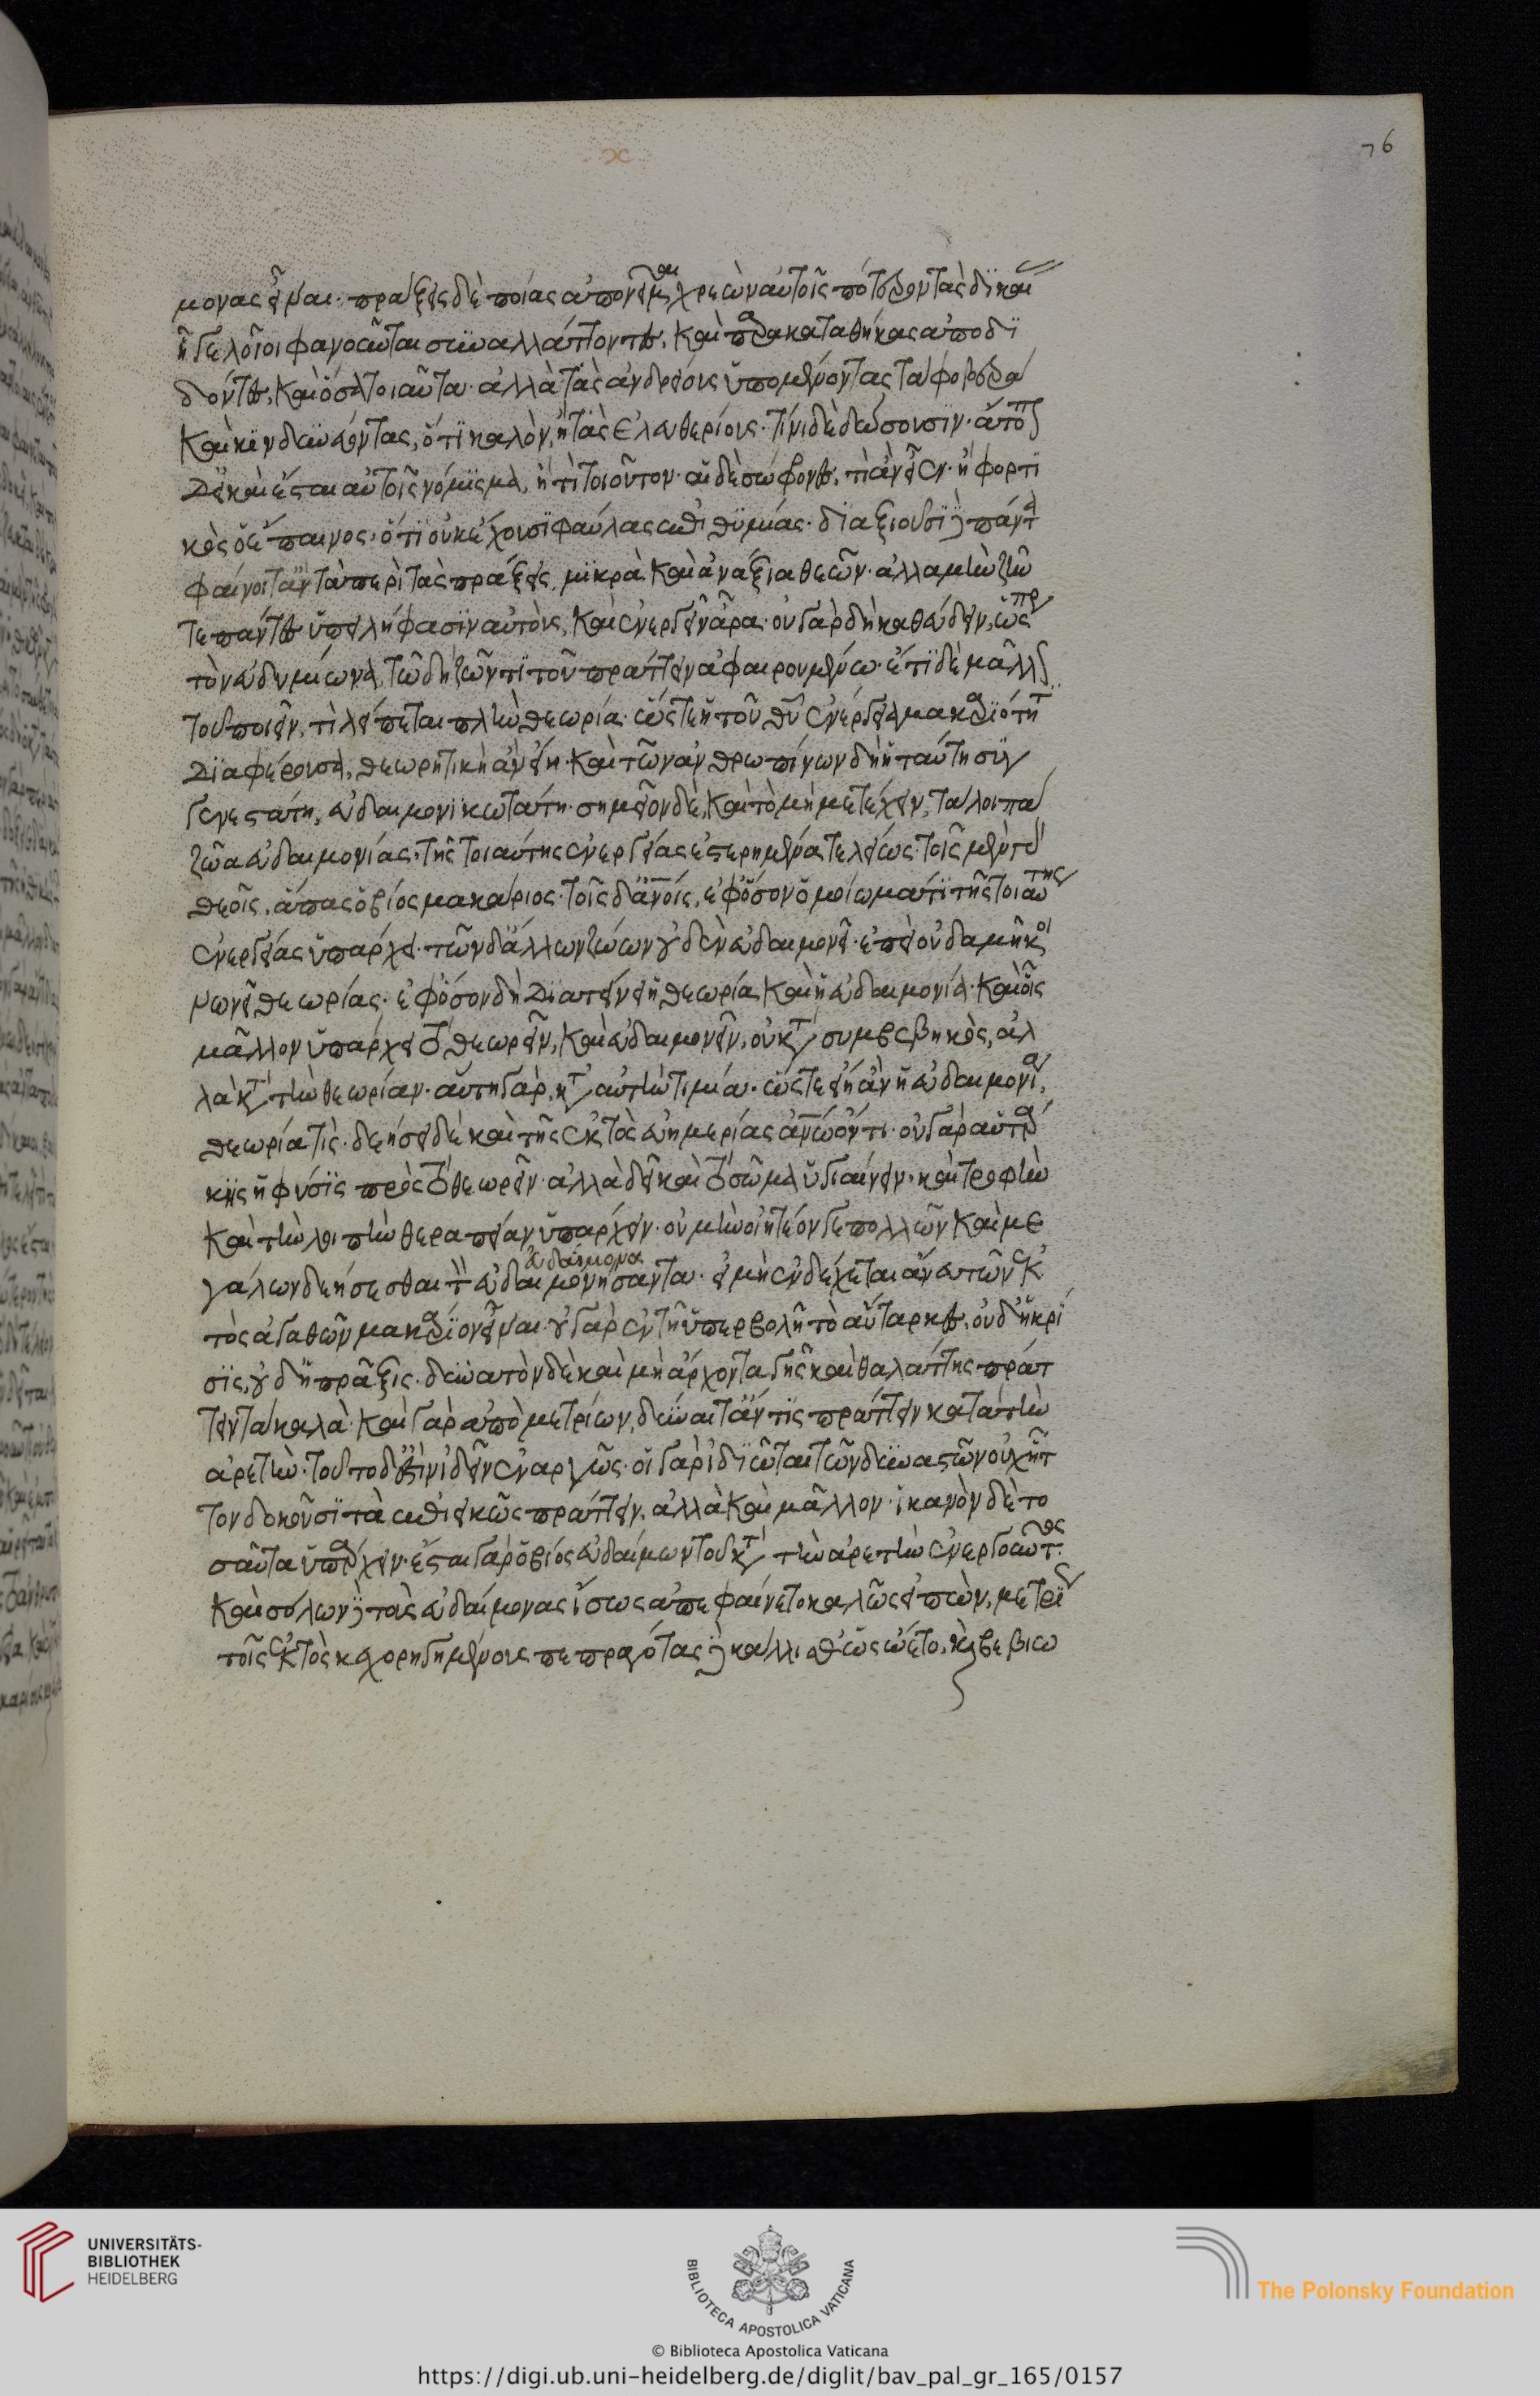 μονας εἶναι· πράξεις δὲ ποίας ἀπονεῖμαι χρεὼν αὐτοῖς πότερον τὰς δικαί
ἢ γελοῖοι φανοῦνται συναλλάττοντες, καὶ παρακαταθήκας ἀποδι
δόντες, καὶ ὅσα τοιαῦτα· ἀλλὰ τὰς ἀνδρείους ὑπομένοντας τὰ φοβερὰ
καὶ κινδυνεύοντας, ὅτι καλόν, ἢ τὰς ἐλευθερίους· τίνι δὲ δώσουσιν· ἄτοπον
δ εἰ καὶ ἔσται αὐτοῖς νόμισμα, ἢ τι τοιοῦτον· αἱ δὲ σώφρονες, τί ἂν εἶεν· ἢ φορτι
κὸς ὁ ἔπαινος, ὅτι οὐκ ἔχουσι φαύλας ἐπιθυμίας· διεξιοῦσι δὲ πάντα
φαίνοιτ ἂν τὰ περὶ τὰς πράξεις, μικρὰ καὶ ἀνάξια θεῶν· ἀλλὰ μὴν ζῆν
τε πάντες ὑπειλήφασιν αὐτοὺς, καὶ ἐνεργεῖν ἄρα· οὐ γὰρ δὴ καθεύδειν, ὥσπερ
τὸν ἐνδυμίωνα, τῶ δὴ ζῶντι τοῦ πράττειν ἀφαιρουμένω· ἔτι δὲ μᾶλλον
τοῦ ποιεῖν, τί λείπεται πλὴν θεωρία· ὥστε ἡ τοῦ θεοῦ ἐνέργεια μακαριότητι
διαφέρουσα, θεωρητικὴ ἂν εἴη· καὶ τῶν ἀνθρωπίνων δὴ ἡ ταύτη συγ
γενεστάτη, εὐδαιμονικωτάτη· σημεῖον δὲ, καὶ τὸ μὴ μετέχειν, τὰ λοιπὰ
ζῶα εὐδαιμονίας, τῆς τοιαύτης ἐνεργείας ἐστερημένα τελείως· τοῖς μὲν γὰρ
θεοῖς, ἅπας ὁ βίος μακάριος· τοῖς δ ἀνοις, ἐφ ὅσον ὁμοίωμά τι τῆς τοιαύτης
ἐνεργείας ὑπάρχει· τῶν δ ἄλλων ζώων οὐδὲν εὐδαιμονεῖ· ἐπεὶ οὐδαμῆ κοι
νωνεῖ θεωρίας· ἐφ ὅσον δὴ διατείνει ἡ θεωρία, καὶ ἡ εὐδαιμονία· καὶ οἷς
μᾶλλον ὑπάρχει τὸ θεωρεῖν, καὶ εὐδαιμονεῖν, οὐ κατὰ συμβεβηκὸς, ἀλ
λὰ κατὰ τὴν θεωρίαν· αὕτη γὰρ, καθ αὑτὴν τιμία· ὥστε εἴη ἂν ἡ εὐδαιμονία,
θεωρία τίς· δεήσει δὲ καὶ τῆς ἐκτὸς εὐημερίας ἀνω ὄντι· οὐ γὰρ αὐτάρ
κης ἡ φύσις πρὸς τὸ θεωρεῖν· ἀλλὰ δεῖ καὶ τὸ σῶμα ὑγιαίνειν, καὶ τροφὴν
καὶ τὴν λοιπὴν θεραπείαν ὑπάρχειν· οὐ μὴν οἰητέον γε πολλῶν καὶ με
εὐδαίμονα
γάλων δεήσεσθαι τὸν εὐδαιμονήσαντα· εἰ μὴ ἐνδέχεται ἄνευ τῶν ἐκ
τὸς ἀγαθῶν μακάριον εἶναι· οὐ γὰρ ἐν τῇ ὑπερβολῇ τὸ αὔταρκες, οὐδ ἡ κρί
σις, οὐδ ἡ πρᾶξις· δυνατὸν δὲ καὶ μὴ ἄρχοντα γῆς καὶ θαλάττης πράτ
τειν τὰ καλά· καὶ γὰρ ἀπὸ μετρίων, δύναιτ ἄν τις πράττειν κατὰ τὴν
ἀρετὴν· τοῦτο δ ἔστιν ἰδεῖν ἐναργῶς· οἱ γὰρ ἰδιῶται τῶν δυναστῶν οὐχ ἧτ
τον δοκοῦσι τὰ ἐπιεικῶς πράττειν, ἀλλὰ καὶ μᾶλλον· ἱκανὸν δὲ το
σαῦτα ὑπάρχειν· ἔσται γὰρ ὁ βίος εὐδαίμων τοῦ κατὰ τὴν ἀρετὴν ἐνεργοῦντος
καὶ σόλων δὲ τὰς εὐδαίμονας ἴσως ἀπεφαίνετο καλῶς εἰπὼν, μετρί
τοῖς ἐκτὸς κεχορηγημένους πεπραγότας δὲ κάλλισθ ὡς ὤετο, καὶ βεβιω
76
UNIVERSITÄTS-
BIBLIOTHEK
HEIDELBERG
BIBLIOTECA APOSTOLICA VATICANA
The Polonsky Foundation
© Biblioteca Apostolica Vaticana
https://digi.ub.uni-heidelberg.de/diglit/bav_pal_gr_165/0157